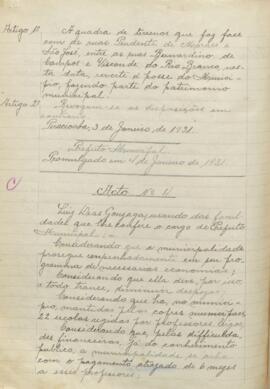 Artigo 1º A quadra de terreno que faz face
com as ruas Prudente de Moraes e
São José, entre as ruas Bernardino de
Campos e Visconde do Rio Branco, nes
ta data, reverte á posse do Muni
pio, fazendo parte do patrimonio
municipal.
Artigo 2º Revogam-se as disposições em
contrario.
Piracicaba, 3 de Janeiro de 1931.
Prefeito Municipal
Promulgado em 4 de Janeiro de 1931.
Acto Nº 11
Luiz Dias Gonzaga, usando das facul
dades que lhe confere o cargo de Prefeito
Municipal; e,
Considerando que a municipalidade
prosegue empenhadamente em seu pro
gramma de necessarias economias;
Considerando que ella deve, por isso
e todo transe, diminuir despezas;
Considerando que ha, no munici
pio, mantidas pelos cofres municipaes,
22 escolas regidas por professores leigos;
Considerando que, pelas difficulda
des financeiras, já do conhecimento
publico, a municipalidade se acha
com o pagamento atrazado de 6 mezes
a esses professores;